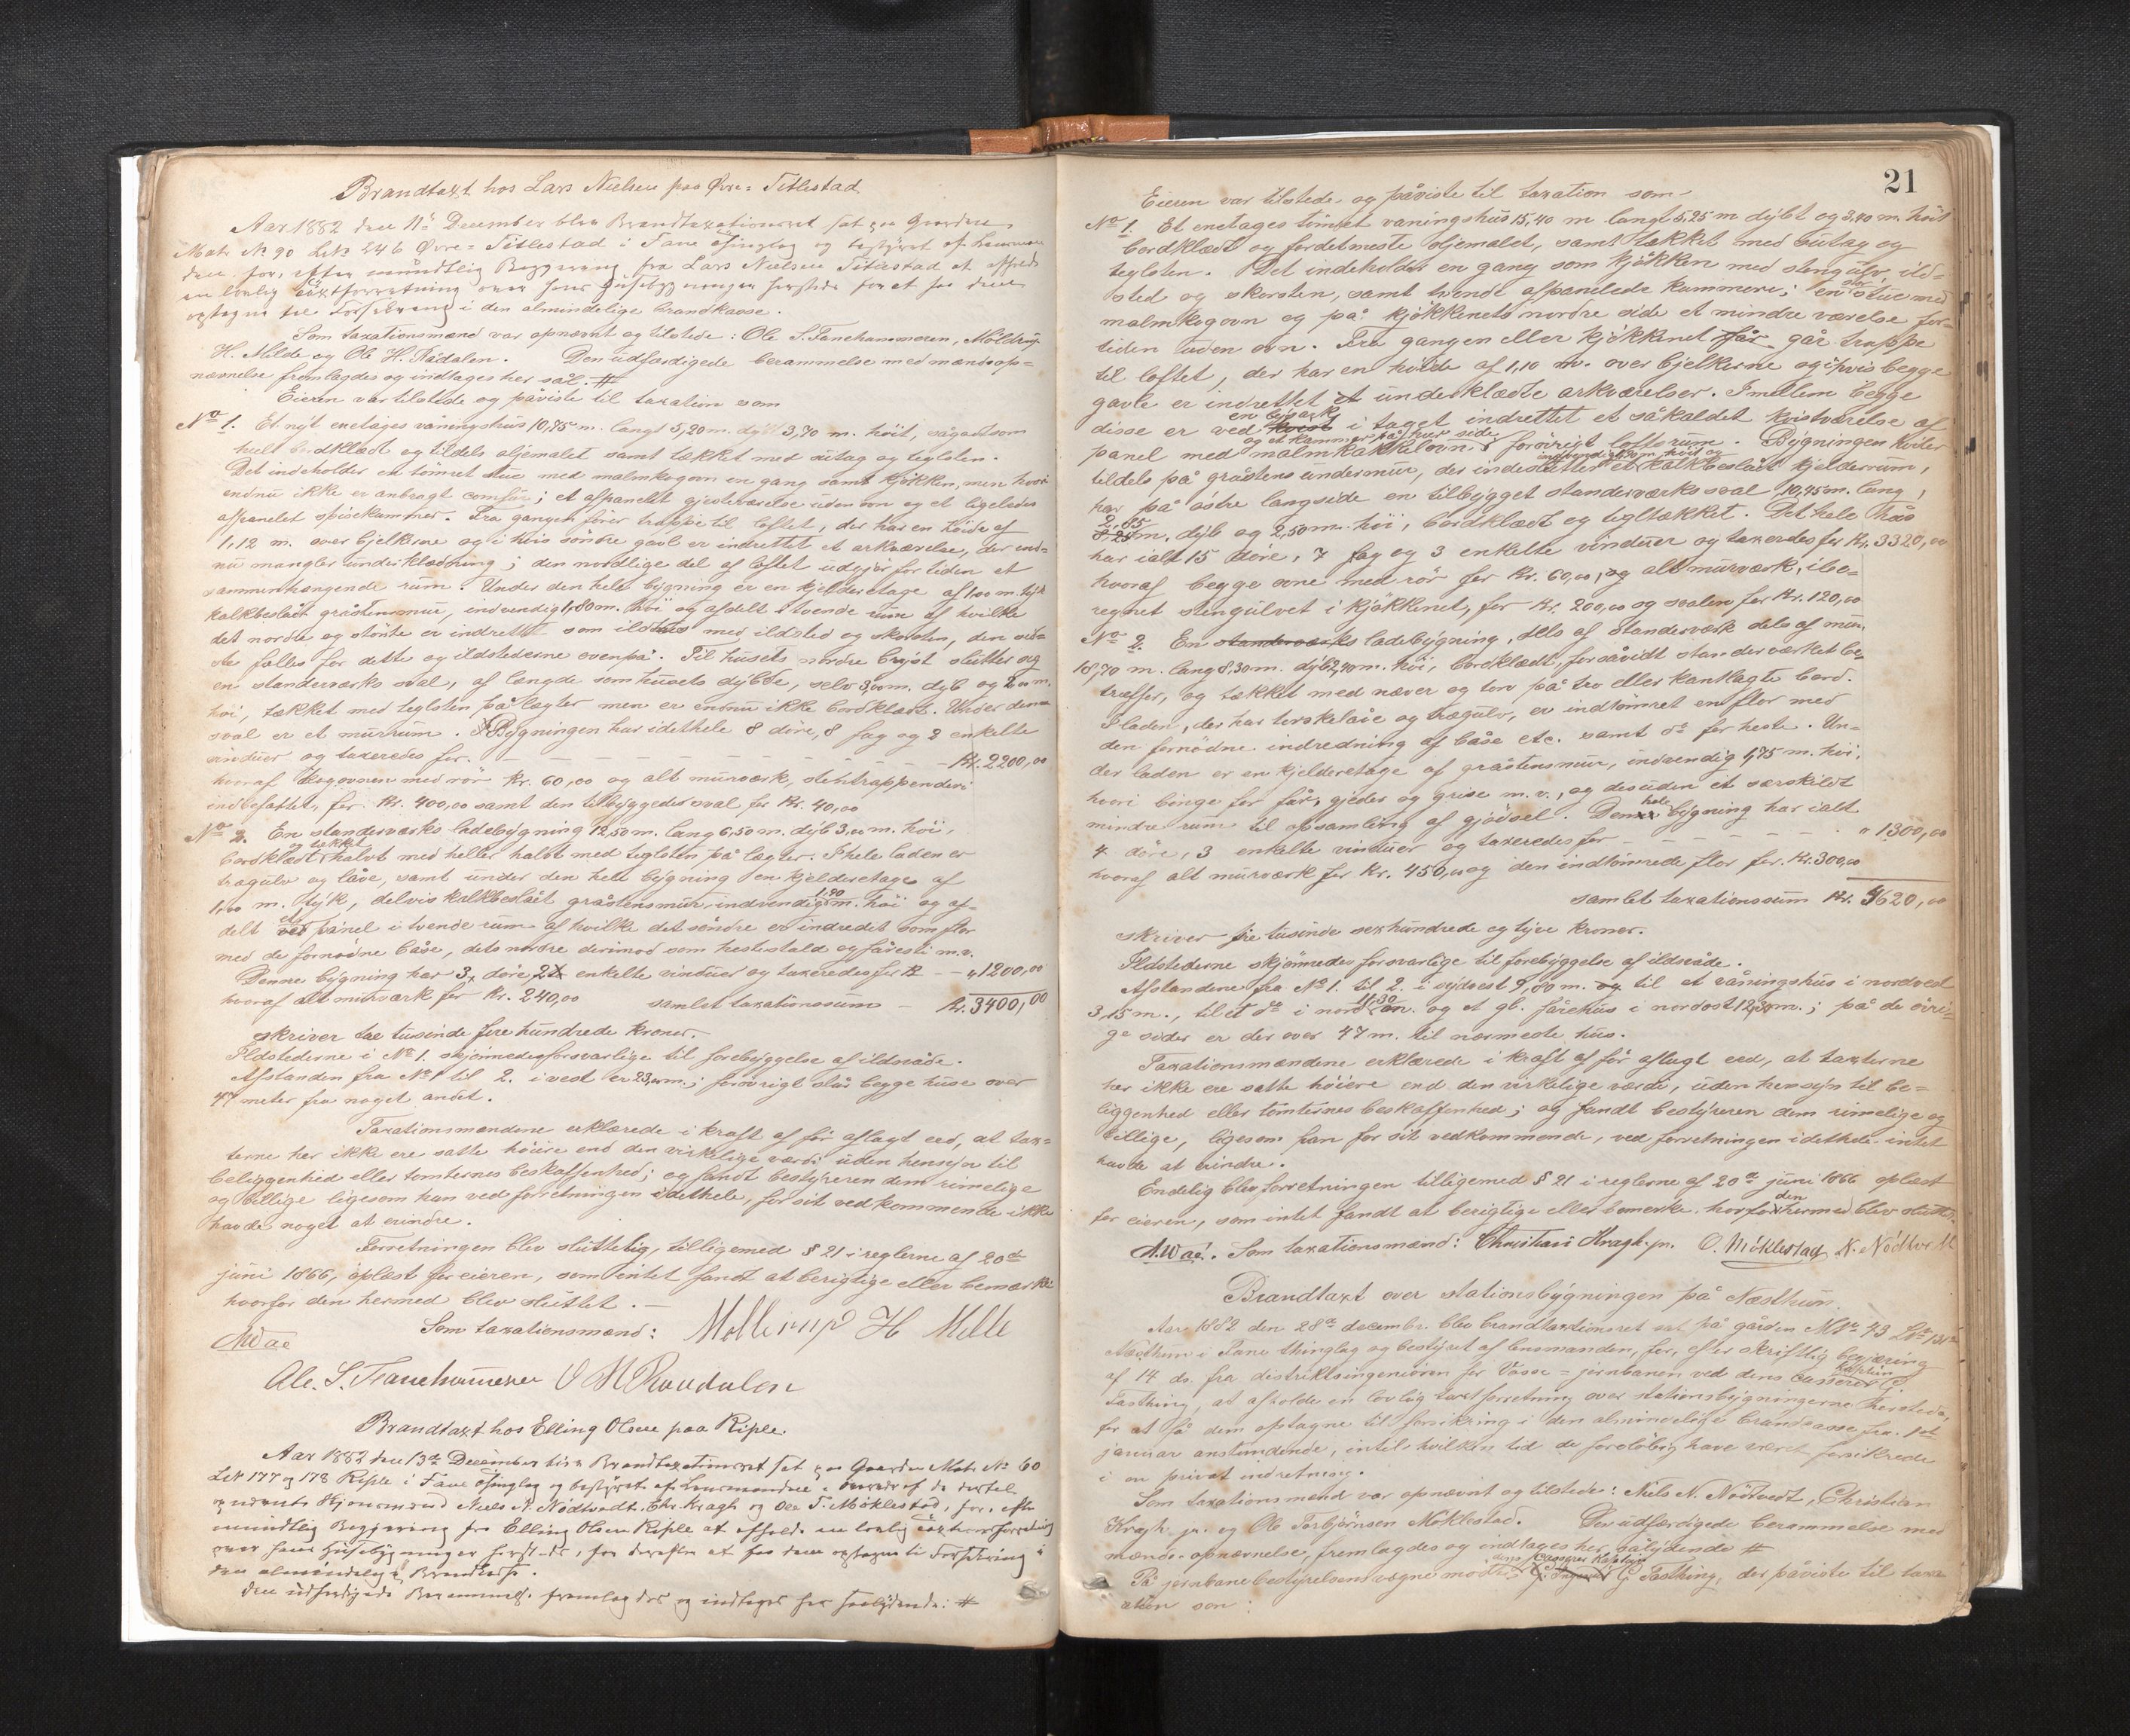 Brandtaxt hos Lars Nielsen paa Øvre-Titlestad
Aar 1882 den 11te December blev Brandtaxationsret sat paa Gaarden
Matr No 90 LNo 246 Øvre-Titlestad i Fane Thinglag og bestyret af Lensman-
den for, efter mundtlig Begjæring fra Lars Nielsen Titlestad at afholde
en lovlig taxtforretning over hans Husebygninger hersteds for at faa dem
optagne til Forsikring i den almindelige Brandkasse.
Som taxationsmænd var opnævnt og tilstede: Ole S. Fanehammeren, Möldrup
H. Milde og Ole H. Rådalen. Den udfærdigede berammelse med mændsop-
nævnelse fremlagdes og indtages her sål. #
Eieren var tilstede og påviste til taxation som
No 1. Et nyt enetages våningshus 10,75 m. langt 5,20 m. dybt 3,70 m. höit, sågodtsom
helt bordklædt og tildels oljemalet samt tækket med sutag og teglsten.
Det indeholder en tömret stue med malmkogovn en gang samt kjökken, men hvori
endnu ikke er anbragt comfür; et afpanelet gjesteværelse uden ovn og et ligeledes
afpanelet spisekammer. Fra gangen förer trappe til loftet, der har en höide af
1,12 m. over bjelkerne og i hvis söndre gavl er indrettet et arkværelse, der end-
nu mangler underklædning; den nordlige del af loftet udgjör for tiden et
sammenhængende rum. Under den hele bygning er en kjelderetage af 1,00 m. tyk
kalkbeslåt gråstensmur, indvendig 1,80 m. höi og afdelt i tvende rum af hvilke
det nordre og störste er indrettet som ildhus med ildsted og skorsten, den sid-
ste fælles for dette og ildstederne ovenpå. Til husets nordre bryst slutter sig
en standerværks sval, af længde som husets dybde, selv 3,00 m. dyb og 2,00 m.
höi, tækket med teglsten på lægter men er endnu ikke bordklædt. Under denne
sval er et murrum. Bygningen har idethele 8 döre, 8 fag og 2 enkelte
vinduer og taxeredes for - - - - - - Kr. 2200,00
hvoraf kogovnen med rör Kr. 60,00 og alt murværk, stentrappen deri
indbefattet, for Kr. 400,00 samt den tilbyggede sval for Kr. 40,00
No 2. En standerværks ladebygning 12,50 m. lang 6,50 m. dyb 3,00 m. höi,
og tækket
bordklædt halvt med heller halvt med teglsten på lægter. I hele laden er
trægulv og låve, samt under den hele bygning en kjelderetage af
1,00 m. tyk, delvis kalkbeslåt gråstensmur, indvendig 1,90 m. höi og af-
delt ved et panel i tvende rum af hvilke det söndre er indredet som flor
med de fornödne båse, dets nordre derimod som hestestald og fåresti m.v.
Denne bygning har 3 döre, 2 enkelte vinduer og taxeredes for Kr - - „ 1200,00
hvoraf alt murværk for Kr. 240,00 samlet taxationssum - Kr. 3400,00
skriver tre tusinde fire hundrede kroner.
Ildstederne i No 1. skjönnedes forsvarlige til forebyggelse af ildsvåde.
Afstanden fra No 1 til 2. i vest er 23,00 m.; forövrigt står begge huse over
47 meter fra noget andet.
Taxationsmændene erklærede i kraft af för aflagt eed, at tax-
terne her ikke ere satte höiere end den virkelige værdi uden hensyn til
beliggenhed eller tomternes beskaffenhed; og fandt bestyreren dem rimelige
og billige ligesom han ved forretningen idethele, for sit vedkommende ikke
havde noget at erindre.
Forretningen blev sluttelig, tilligemed § 21 i reglerne af 20de
juni 1866, oplæst for eieren, som intet fandt at berigtige eller bemærke
hvorfor den hermed blev sluttet. -
Som taxationsmænd: Mollerup H Milde
AWae
Ole. S. Fanehammeren O H Raadalen
Brandtaxt hos Elling Olsen paa Riple
Aar 1882 den 13de December blev Brandtaxationsret sat paa Gaarden Matr No 60
LNo 177 og 178 Riple i Fane Thinglag og bestyret af Lensmanden i Overvær af de dertil
opnævnte Skjönsmænd Niels N. Nödtvedt, Chr. Kragh og Ole T. Möklestad, for, efter
mundtlig Begjæring fra Elling Olsen Riple at afholde en lovlig taxtforretning
over hans Husebygninger hersteds, for derefter at faa dem optagne til Forsikring i
den almindelige Brandkasse.
Den udfærdigede Berammelse fremlagdes og indtages her saalydende: #
21
Eieren var tilstede og påviste til taxation som
No 1. Et enetages tömret våningshus 15,40 m langt 5,25 m dybt og 3,40 m. höit
bordklædt og fordetmeste oljemalet, samt tækket med sutag og
teglsten. Det indeholder en gang som kjökken med stengulv, ild-
sted og skorsten, samt tvende afpanelede kammere; en stor stue med
malmkogovn og på kjökkenets nordre side et mindre værelse for-
tiden uden ovn. Fra gangen eller kjökkenet går trappe
til loftet, der har en höide af 1,10 m. over bjelkerne og i hvis begge
gavle er indrettet underklædte arkværelser. Imellem begge
en lysark
disse er ved kvist i taget indrettet et såkaldet kvistværelse af
og et kammer på hver side,
panel med malmkakkelovn forövrigt loftsrum. Bygningen hviler
tildels på gråstens undermur, der indeslutter et kalkbeslået kjelderrum,
har på östre langside en tilbygget standerværks sval, 10,45 m. lang,
2,05
m. dyb og 2,50 m. höi, bordklædt og tegltækket. Det hele hus
har ialt 15 döre, 7 fag og 3 enkelte vinduer og taxeredes for Kr. 3320,00
hvoraf begge ovne med rör for Kr. 60,00, og alt murværk, ibe-
regnet stengulvet i kjökkenet, for Kr. 200,00 og svalen for Kr. 120,00
No 2. En standerværks ladebygning, dels af standerværk dels af mur,
18,70 m. lang 8,30 m. dyb 2,40 m. höi, bordklædt, forsåvidt standerværket be-
træffer, og tækket med næver og torv på tro eller kantlagte bord.
I laden, der har terskelåve og trægulv, er indtömret en flor med
den fornödne indredning af båse etc. samt do for heste. Un-
der laden er en kjelderetage af gråstensmur, indvendig 1,75 m. höi,
hvori binge for får, gjeder og grise m.v., og desuden et særskildt
mindre rum til opsamling af gjödsel. Den hele bygning har ialt
4 döre, 3 enkelte vinduer og taxeredes for - - - - - „ 1300,00
hvoraf alt murværk for Kr. 450,00 og den indtömrede flor for Kr. 300,00
samlet taxationssum Kr. 4620,00
skriver fire tusinde sexhundrede og tyve kroner.
Ildstederne skjönnedes forsvarlige til forebyggelse af ildsvåde.
Afstandene fra No 1. til 2. i sydvest 9,80 m. til et våningshus i nordvest
3,15 m., til et do i nord 11,30 m. og et gl. fårehus i nordost 12,30 m.; på de övri-
ge sider er der over 47 m. til nærmeste hus.
Taxationsmændene erklærede i kraft af för aflagt eed, at taxterne
her ikke ere satte höiere end den virkelige værdi, uden hensyn til be-
liggenhed eller tomternes beskaffenhed; og fandt bestyreren dem rimelige og
billige, ligesom han for sit vedkommende, ved forretningen idethele intet
havde at erindre.
Endelig blev forretningen tilligemed § 21 i reglerne af 20de juni 1866 oplæst
for eieren, som intet fandt at berigtige eller bemerke, hvorfor den hermed blev sluttet.
AWae. Som taxationsmænd: Christian Kragh jr. O. Möklestad N. Nödtvedt
Brandtaxt over stationsbygningen på Næsttun.
Aar 1882 den 28de decembr. blev brandtaxtionsret sat på gården MNo 43 LNo
Næsttun i Fane thinglag og bestyret af lensmanden, for, efter skriftlig begjæring
af 14 ds. fra distriktsingeniören for Vosse-jernbanen ved dens casserer kaptein G.
Fasting, at afholde en lovlig taxtforretning over stationsbygningerne hersteds,
for at få dem optagne til forsikring i den almindelige brandcasse fra 1ste
januar anstundende, intil hvilken tid de forelöbig have været forsikrede
i en privat indretning.
Som taxationsmænd var opnævnt og tilstede: Niels N. Nödtvedt, Christian
Kragh jr. og Ole Torbjörnsen Möklestad. Den udfærdigede berammelse med
mænds-opnævnelse, fremlagdes og indtages her sålydende #
dens casserer kaptein
På jernbanebestyrelsens vegne mödte G. Fasting, der påviste til taxa-
ation som: